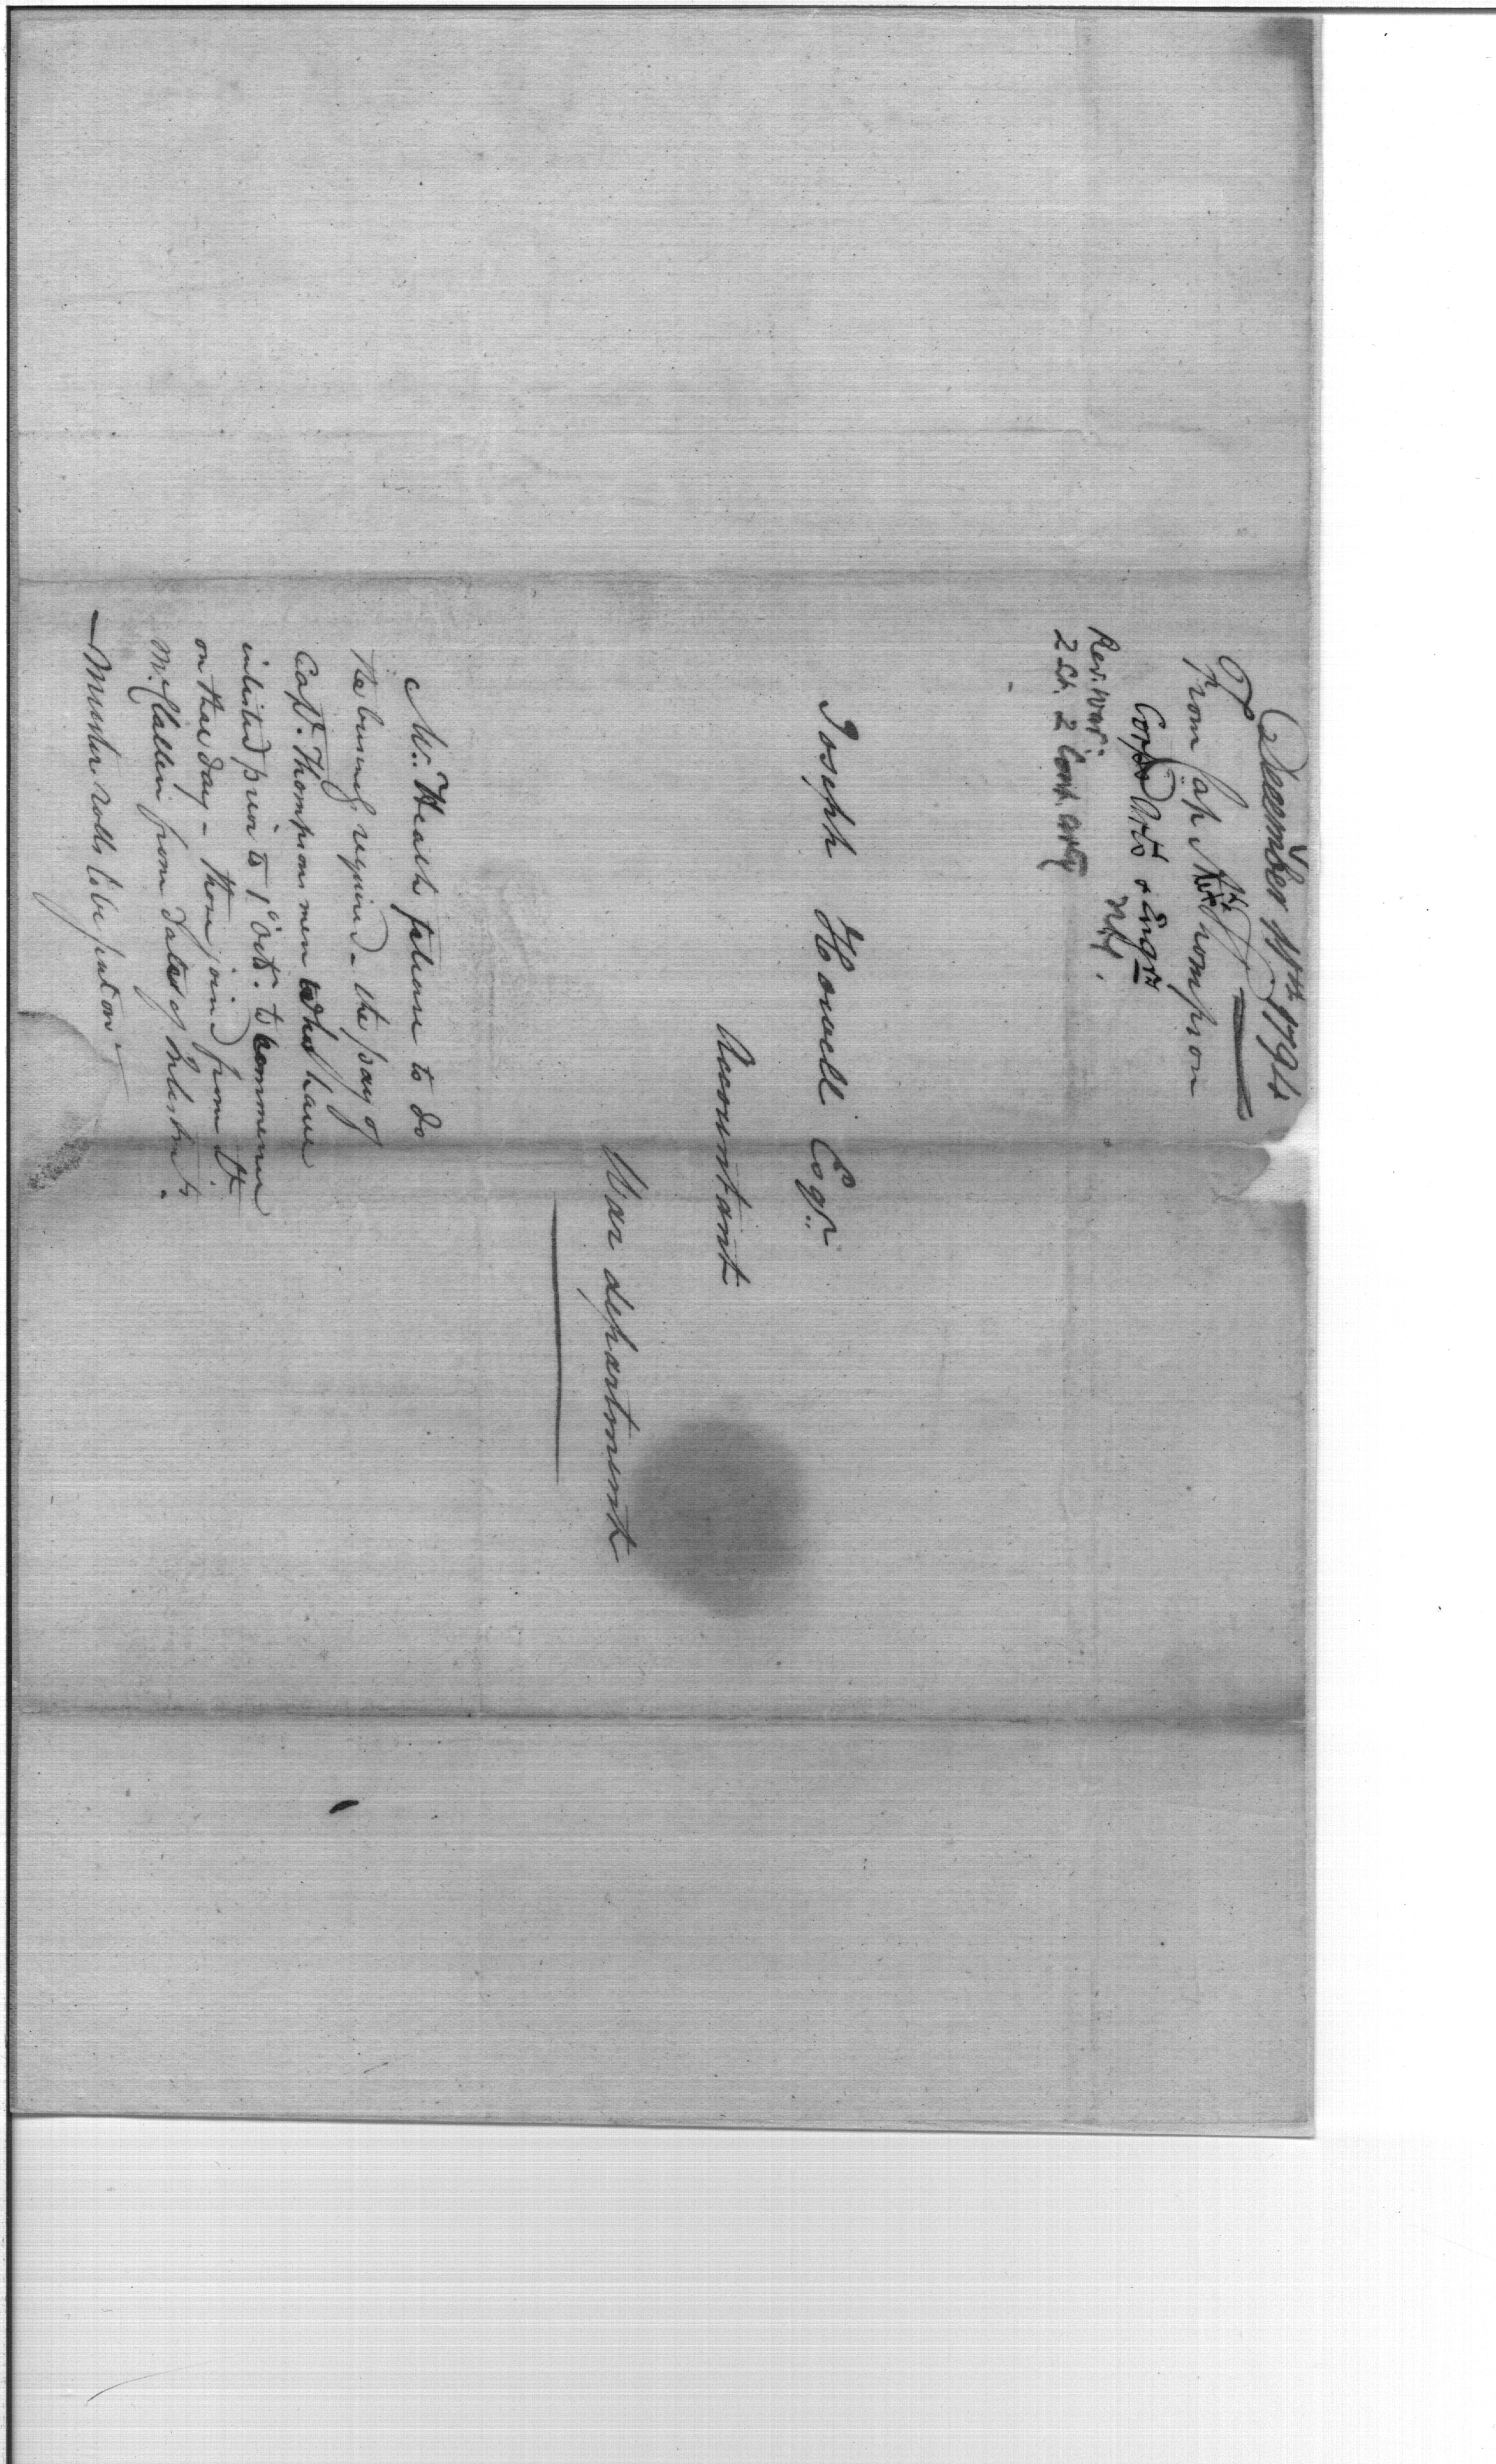 December 11th 1794
From Cap Alexr Thompson
Corps Arts & Engrs
N.Y.
Rev. War.
2 Lt. 2 Cont. Arty
Joseph Howell Esqr.
Accountant
War department
Mr. Heath please to do
the business required - the pay of
Capt. Thompsons men who have
inlisted prior to 1 Oct. to commence
on that day - those joined from Lt.
McClallen from dates of inlistmts.
— Muster rolls to be put on -